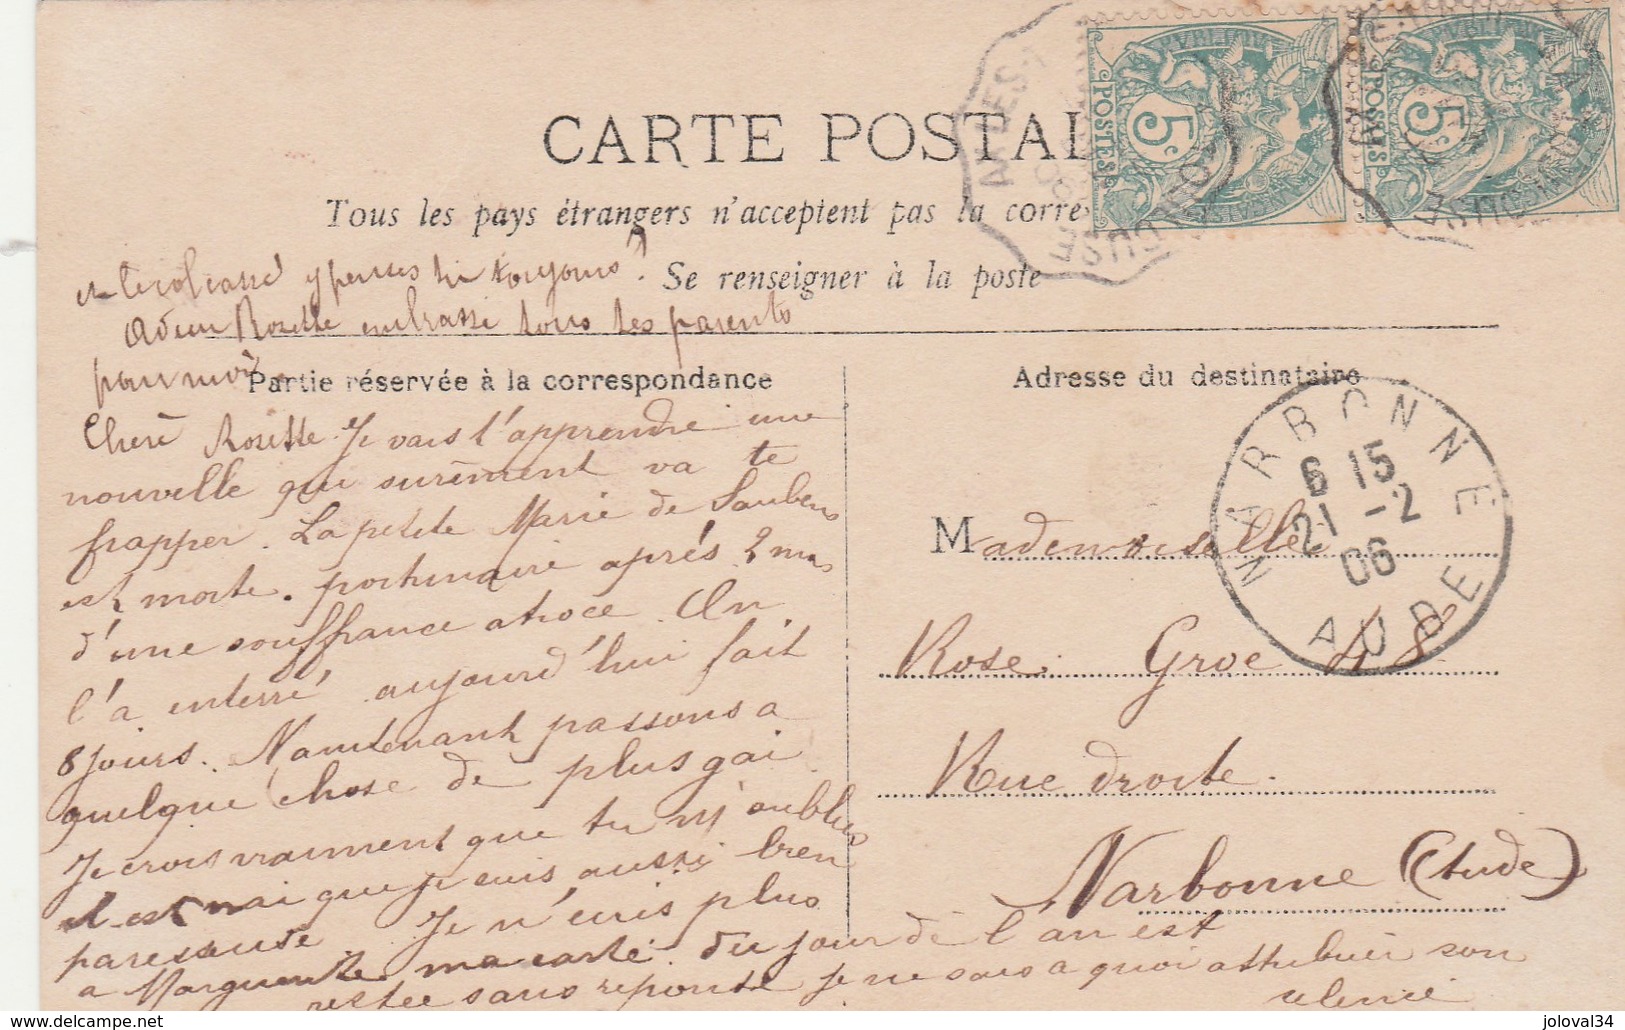 CARTE POSTAL
Tous les pays étrangers n'acceptent pas la corre
Se renseigner à la poste
et le colcassé y penses tu toujours ?
Adieu Rozette embrasse tous tes parents
pour moi
Partie réservée à la correspondance
Adresse du destinataire
Cherè Rosette. Je vais t'apprendre une
nouvelle qui surèment va te
frapper. La petite Marie de Saubens
est morte. poitrinaire après 2 mois
d'une souffrance atroce. On
l'a enterré aujourd'hui fait
8 jours. Maintenant passons a
quelque chose de plus gai.
Je crois vraiment que tu m'oublies
il est vrai que je suis aussi bien
paresseuse. Je n'écris plus
a Marguerite ma carte du jour de l'an est
restée sans réponse je ne sais a quoi attribuer son
silence
Mademoiselle
Rose Groc 48
Rue droite.
Narbonne (Aude)
NARBONNE
6 15
21 -2
06
AUDE
POSTES
5c
POSTES
5c
joloval34